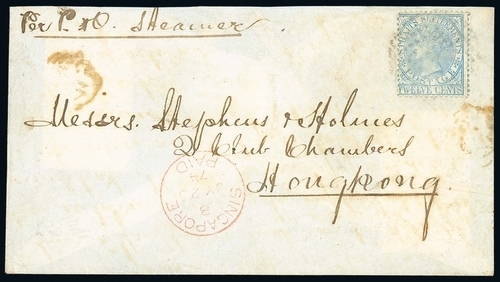 Per P. & O. Steamer
STRAITS SETTLEMENTS
POSTAGE
TWELVE CENTS
Messrs. Stephens & Holmes
2 Club Chambers
Hongkong.
SINGAPORE
PAID